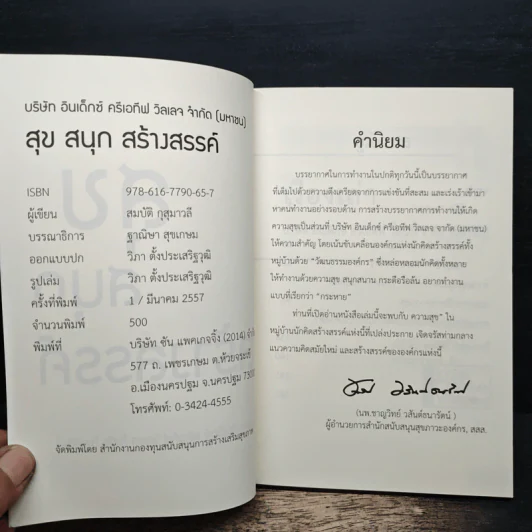 บริษัท อินเด็กซ์ ครีเอทีฟ วิลเลจ จำกัด (มหาชน)
สุข สนุก สร้างสรรค์
ISBN 978-616-7790-65-7
ผู้เขียน สมบัติ กุสุมาวลี
บรรณาธิการ ฐาณิษา สุขเกษม
ออกแบบปก วิภา ตั้งประเสริฐวุฒิ
รูปเล่ม วิภา ตั้งประเสริฐวุฒิ
ครั้งที่พิมพ์ 1 / มีนาคม 2557
จำนวนพิมพ์ 500
พิมพ์ที่ บริษัท ซัน แพคเกจจิ้ง (2014) จำกัด
577 ถ. เพชรเกษม ต.ห้วยจระเข้
อ.เมืองนครปฐม จ.นครปฐม
โทรศัพท์: 0-3424-4555
จัดพิมพ์โดย สำนักงานกองทุนสนับสนุนการสร้างเสริมสุขภาพ
คำนิยม
บรรยากาศในการทำงานในปกติทุกวันนี้เป็นบรรยากาศ
ที่เต็มไปด้วยความตึงเครียดจากการแข่งขันที่สะสม และเร่งเร้าเข้ามา
หาคนทำงานอย่างรอบด้าน การสร้างบรรยากาศการทำงานให้เกิด
ความสุขเป็นส่วนที่ บริษัท อินเด็กซ์ ครีเอทีฟ วิลเลจ จำกัด (มหาชน)
ให้ความสำคัญ โดยเน้นขับเคลื่อนองค์กรแห่งนักคิดสร้างสรรค์ทั้ง
หมู่บ้านด้วย "วัฒนธรรมองค์กร" ซึ่งหล่อหลอมนักคิดทั้งหลาย
ให้ทำงานด้วยความสุข สนุกสนาน กระตือรือล้น อยากทำงาน
แบบที่เรียกว่า "กระหาย"
ท่านที่เปิดอ่านหนังสือเล่มนี้จะพบกับ ความสุข" ใน
หมู่บ้านนักคิดสร้างสรรค์แห่งนี้ที่เปล่งประกาย เจิดจรัสท่ามกลาง
แนวความคิดสมัยใหม่ และสร้างสรรค์ขององค์กรแห่งนี้
(นพ.ชาญวิทย์ วสันต์ธนารัตน์ )
ผู้อำนวยการสำนักสนับสนุนสุขภาวะองค์กร, สสส.